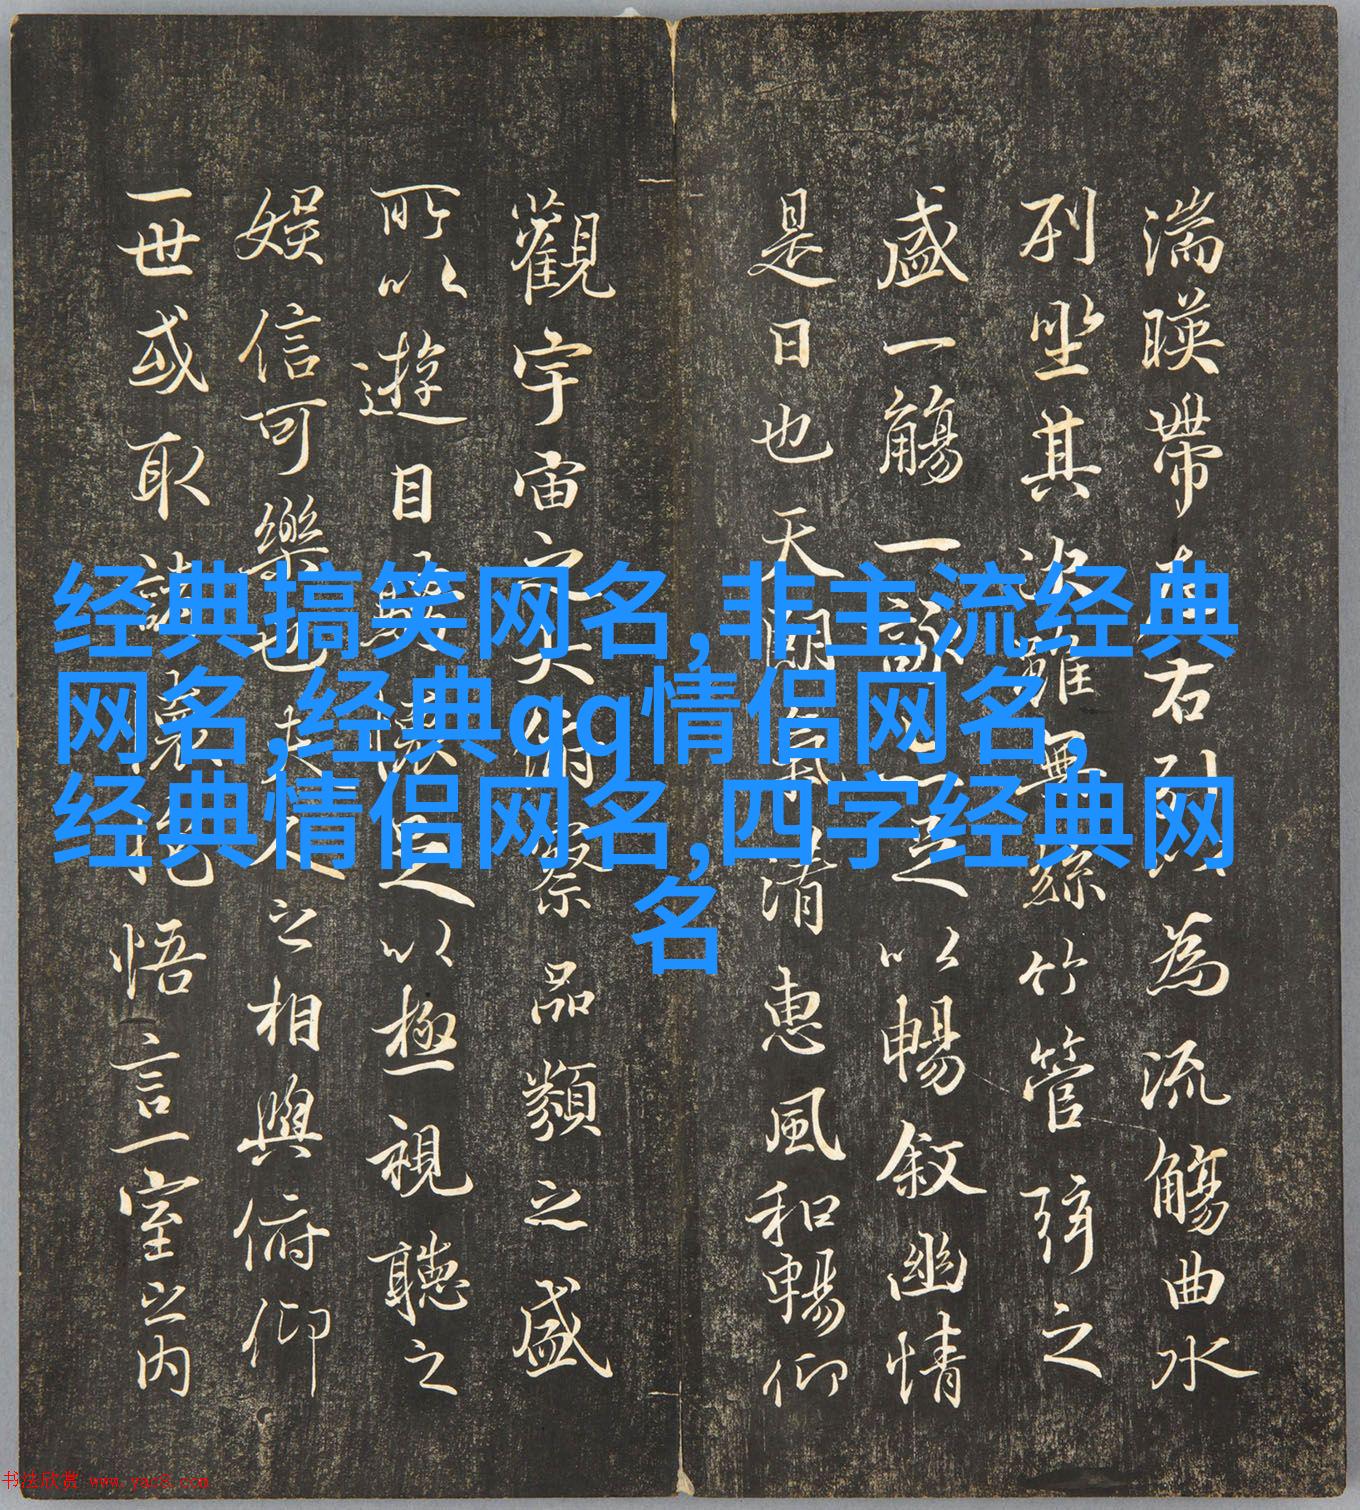 湍暎帶左右引以為流觴曲水
列坐其次雖無絲竹管弦之
盛一觴一詠亦足以暢敘幽情
是日也天朗氣清惠風和暢仰
觀宇宙之大俯察品類之盛
所以遊目騁懷足以極視聽之
娛信可樂也夫人之相與俯仰
一世或取諸懷抱悟言一室之內
经典搞笑网名,非主流经典
网名,经典qq情侣网名,
经典情侣网名,四字经典网
名
书法欣赏 www.yac8.com